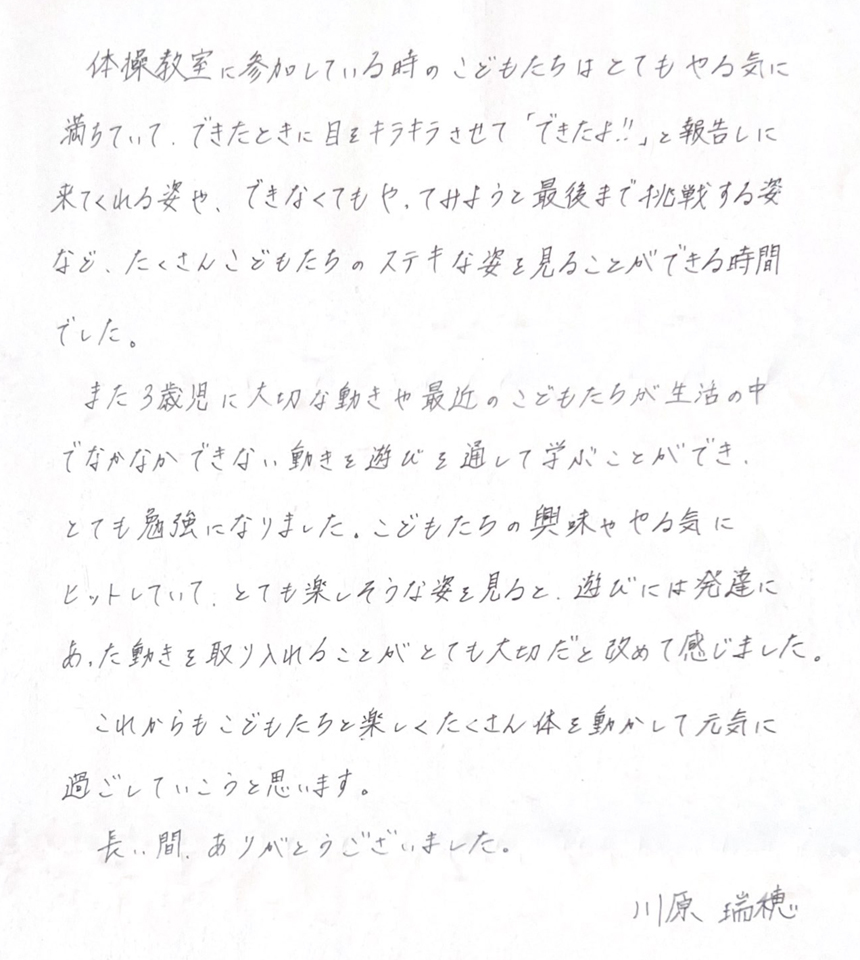 体操教室に参加している時のこどもたちはとてもやる気に
満ちていて、できたときに目をキラキラさせて「できたよ!!」と報告しに
来てくれる姿や、できなくてもやってみようと最後まで挑戦する姿
など、たくさんこどもたちのステキな姿を見ることができる時間
でした。
また3歳児に大切な動きや最近のこどもたちが生活の中
でなかなかできない動きを遊びを通して学ぶことができ、
とても勉強になりました。こどもたちの興味ややる気に
ヒットしていて、とても楽しそうな姿を見ると、遊びには発達に
あった動きを取り入れることがとても大切だと改めて感じました。
これからもこどもたちと楽しくたくさん体を動かして元気に
過ごしていこうと思います。
長い間、ありがとうございました。
川原 瑞穂